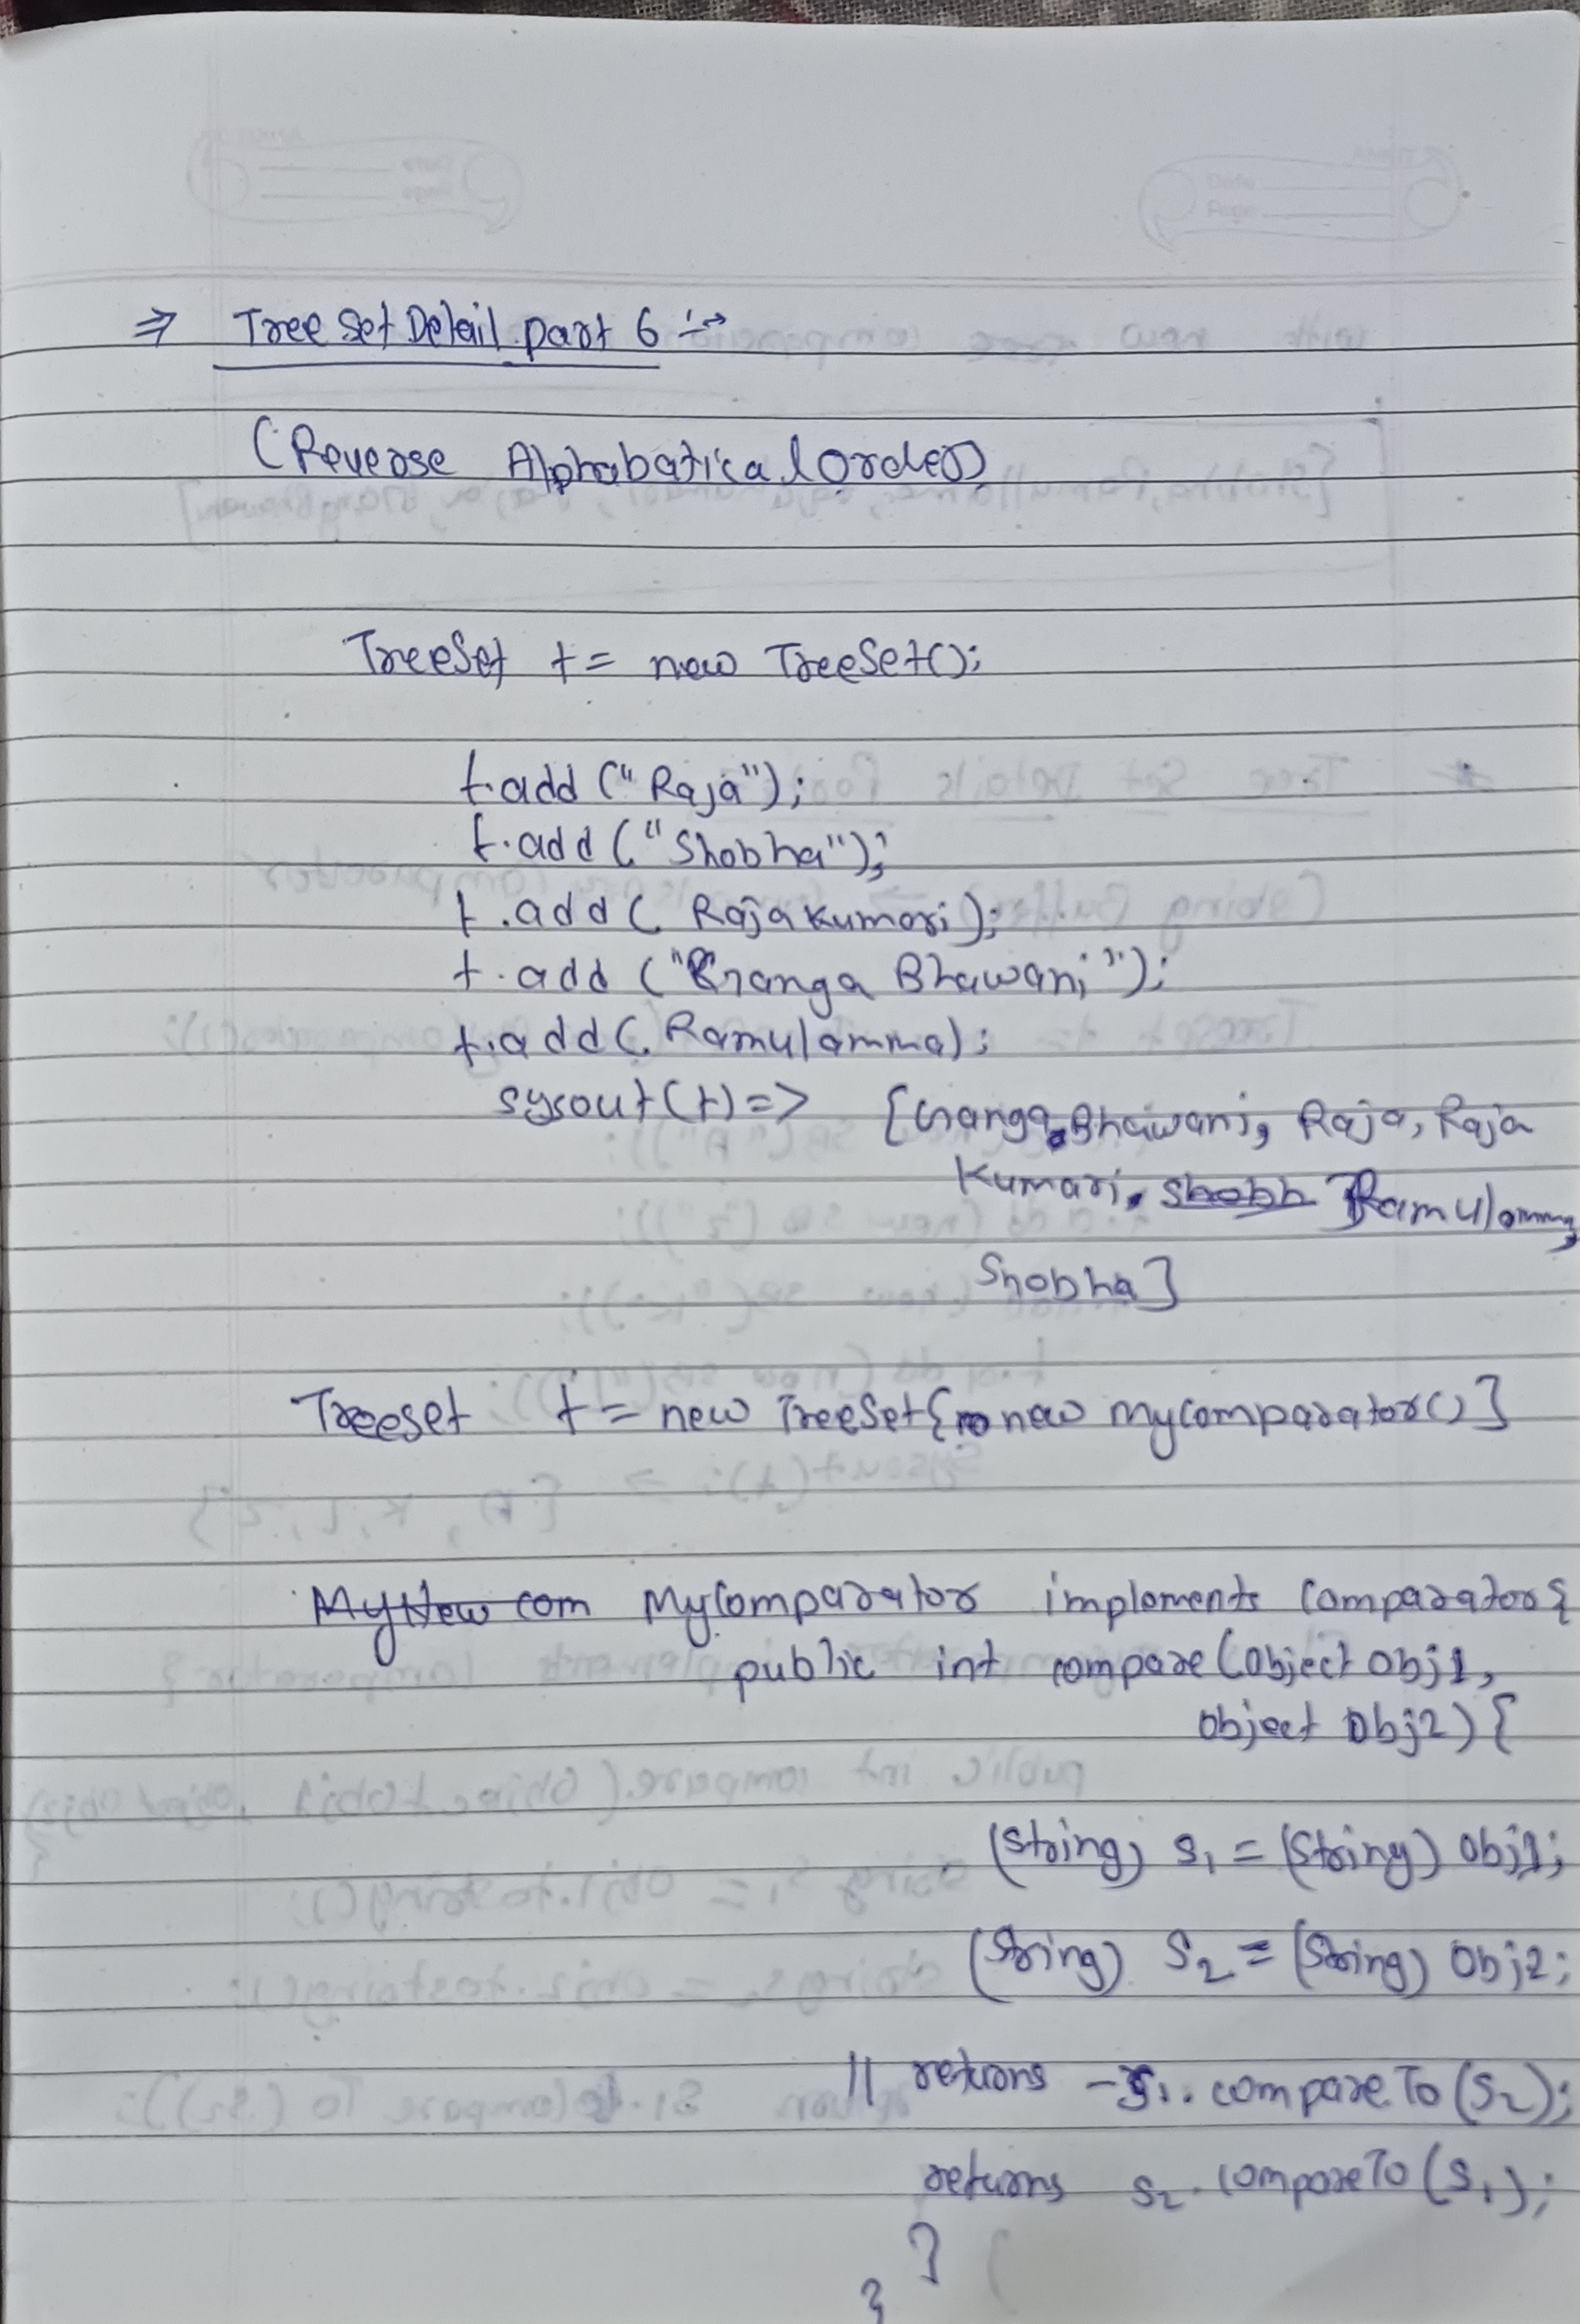 ⇒ Tree Set Detail part 6 :→
(Reverse Alphabatical Order)
TreeSet t = new TreeSet();
t.add ("Raja");
t.add ("Shobha");
t.add ( Rajakumari );
t.add ("Ganga Bhawani");
t.add ( Ramulamma);
sysout(t) => {Ganga Bhawani, Raja, Raja
Kumari, Ramulamma,
Shobha]
Treeset t = new TreeSet{ new mycomparator()}
MyNew com MyComparator implements Comparator{
public int compare (Object obj1,
object Obj2) {
(String) s1 = (String) obj1;
(String) S2 = (String) Obj2;
// returns -s1. compareTo (S2);
returns s2. compareTo (S1);
}
}